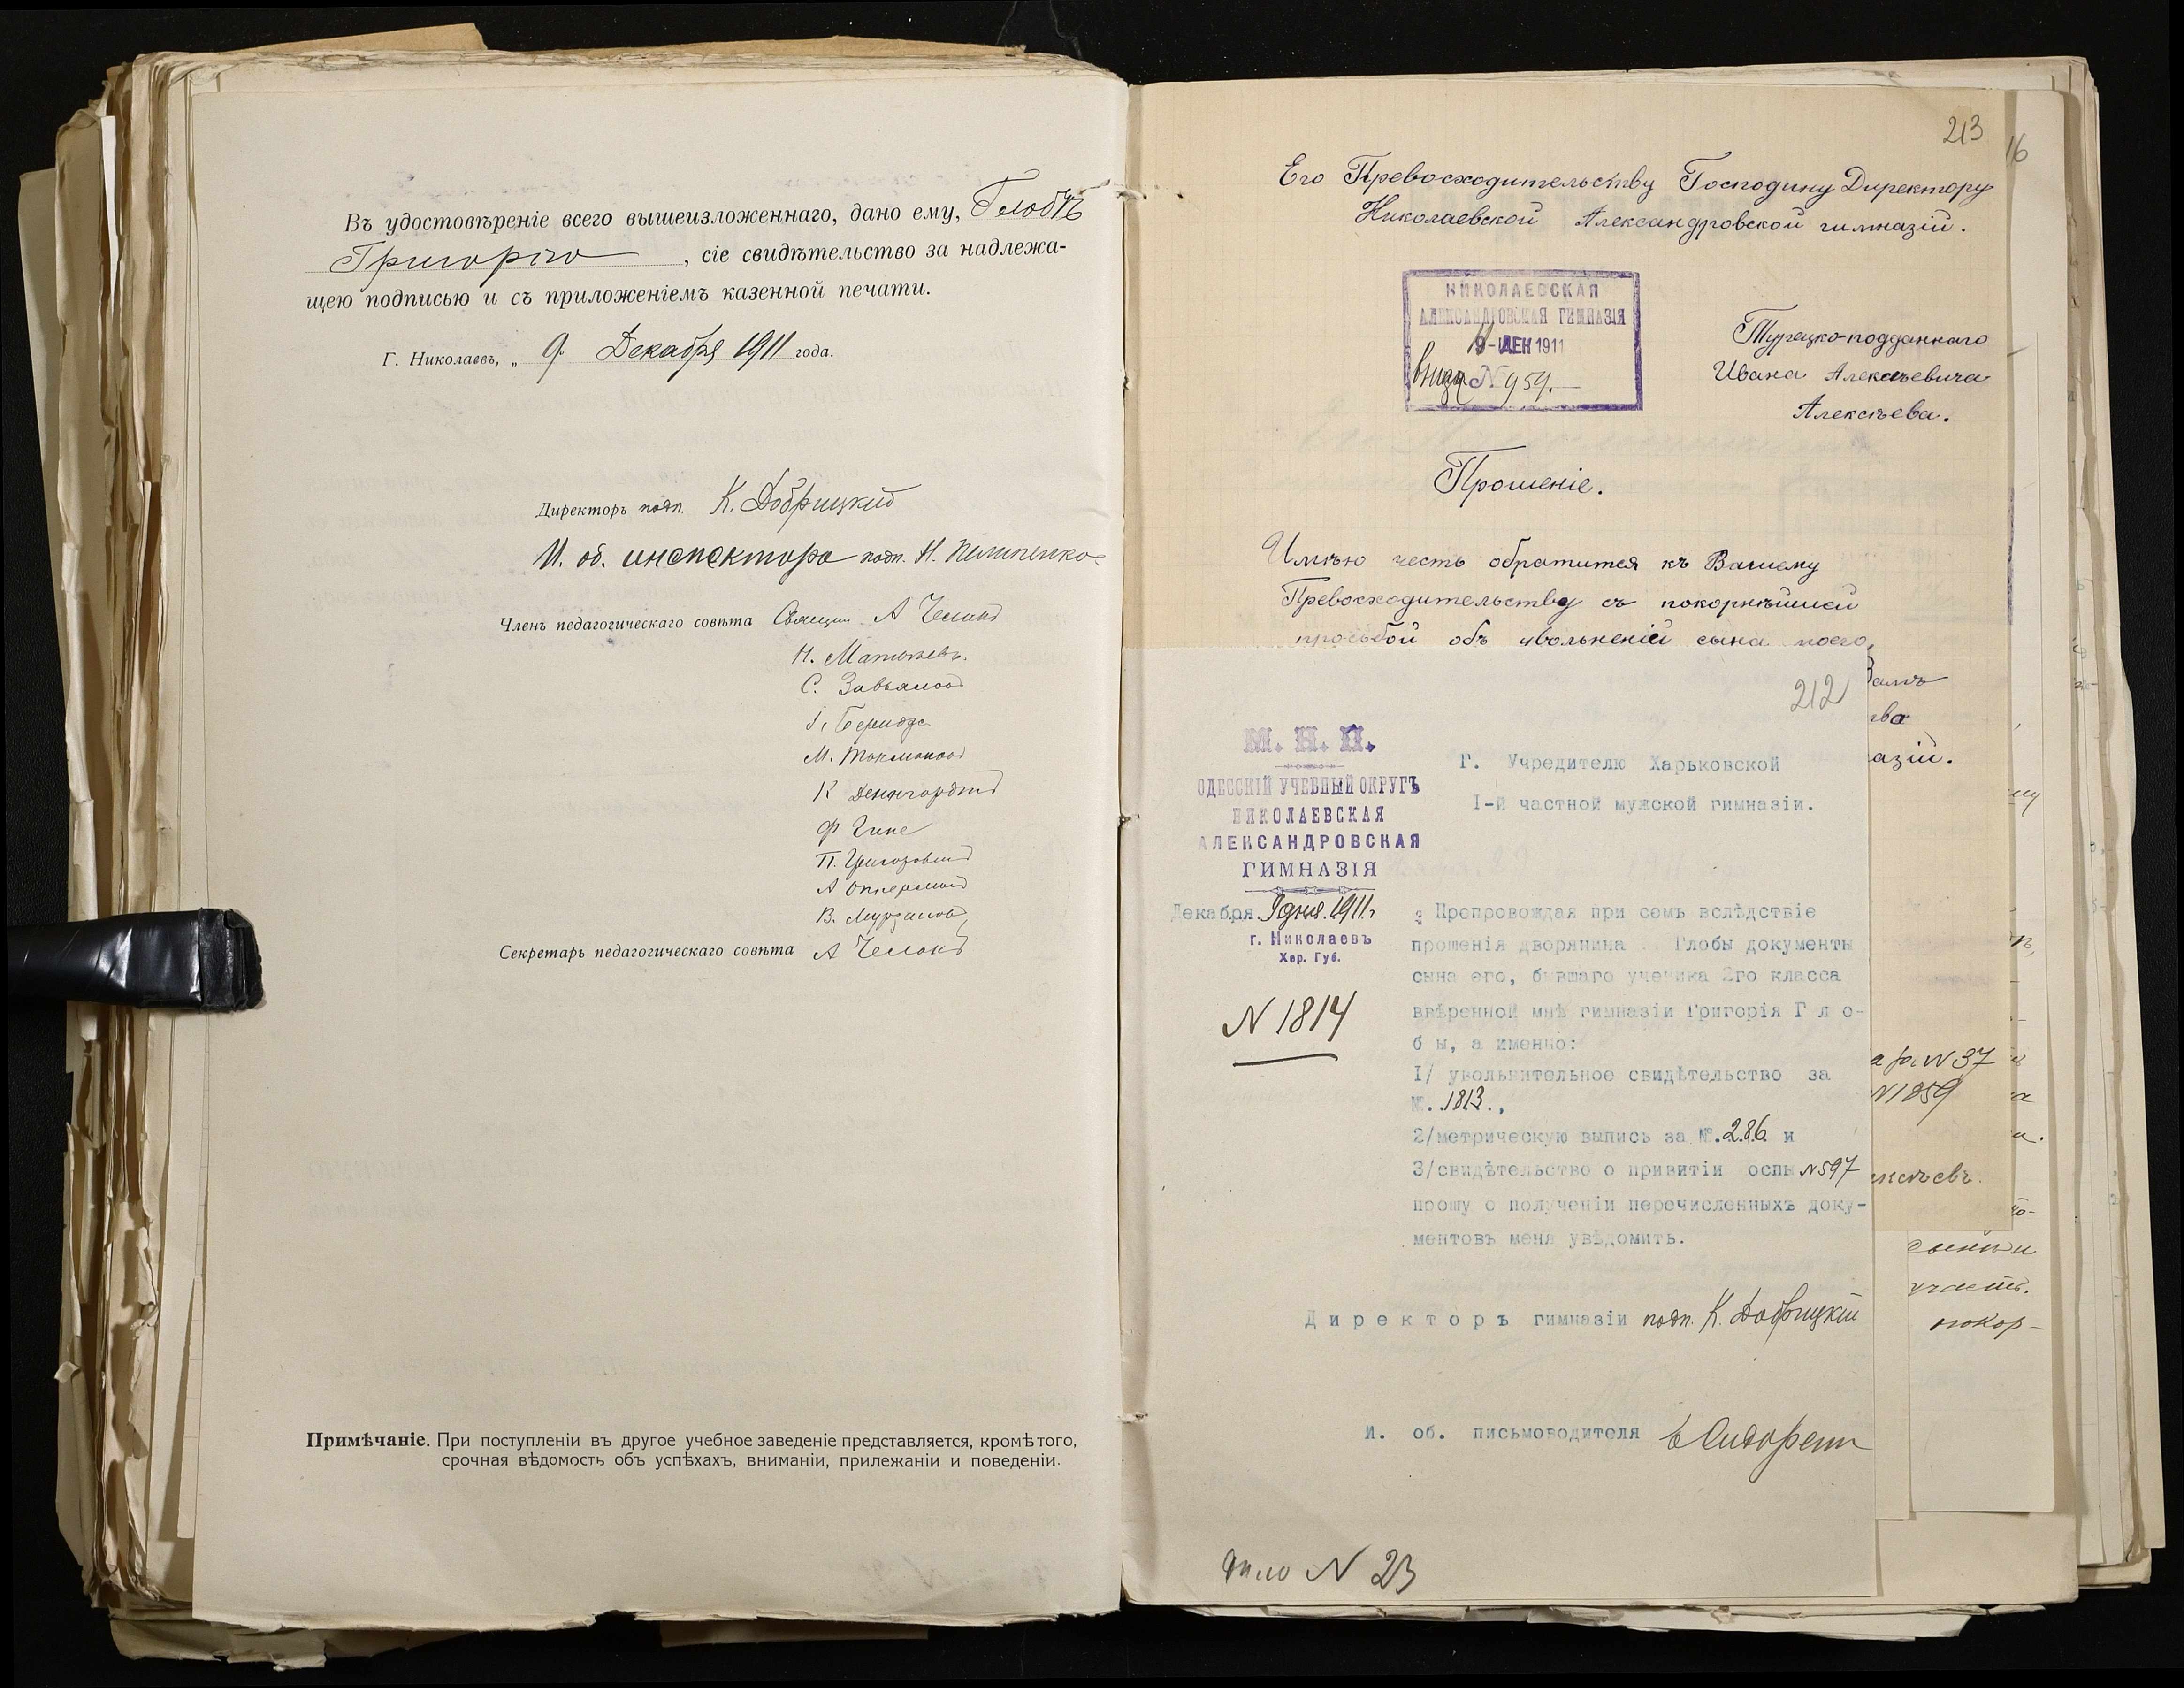 Въ удостовѣреніе всего вышеизложеннаго, дано ему, Глобѣ
Григорію, сіе свидѣтельство за надлежа-
щею подписью и съ приложеніемъ казенной печати.
Г. Николаевъ, „ 9 Декабря 1911 года.
Директоръ подп. К. Добрицкій
И. об. инспектора подп. Н.
Членъ педагогическаго совѣта Священ. А
Н.
С. Завьялов
М. Токмаков
К
Ф
П. Григорович
А
В.
Секретарь педагогическаго совѣта А
Примѣчаніе. При поступленіи въ другое учебное заведеніе представляется, кромѣ того,
срочная вѣдомость объ успѣхахъ, вниманіи, прилежаніи и поведеніи.
213
16
Его Превосходительству Господину Директору
Николаевской Александровской гимназіи.
НИКОЛАЕВСКАЯ
АЛЕКСАНДРОВСКАЯ ГИМНАЗІЯ
9-ДЕК 1911
№ 959.
Турецко-подданнаго
Ивана Алексѣевича
Алексѣева.
Прошеніе.
Имѣю честь обратится къ Вашему
Превосходительству съ покорнѣйшей
просьбой объ увольненіи сына моего,
212
азіи.
М. Н. П.
ОДЕССКІЙ УЧЕБНЫЙ ОКРУГЪ
НИКОЛАЕВСКАЯ
АЛЕКСАНДРОВСКАЯ
ГИМНАЗІЯ
Декабря 9 дня 1911 г.
г. Николаевъ
Хер. Губ.
N 1814
Г. Учредителю Харьковской
I-й частной мужской гимназіи.
Препровождая при семъ вслѣдствіе
прошенія дворянина Глобы документы
сына его, бывшаго ученика 2го класса
ввѣренной мнѣ гимназіи Григорія Г л о-
б ы, а именно:
I/ увольнительное свидѣтельство за
№. 1813.,
2/метрическую выпись за №. 286 и
3/свидѣтельство о привитіи оспы N 597
прошу о полученіи перечисленныхъ доку-
ментовъ меня увѣдомить.
Директоръ гимназіи подп. К. Добрицкій
И. об. письмоводителя
N 37
N 1859
покор-
дѣло N 23